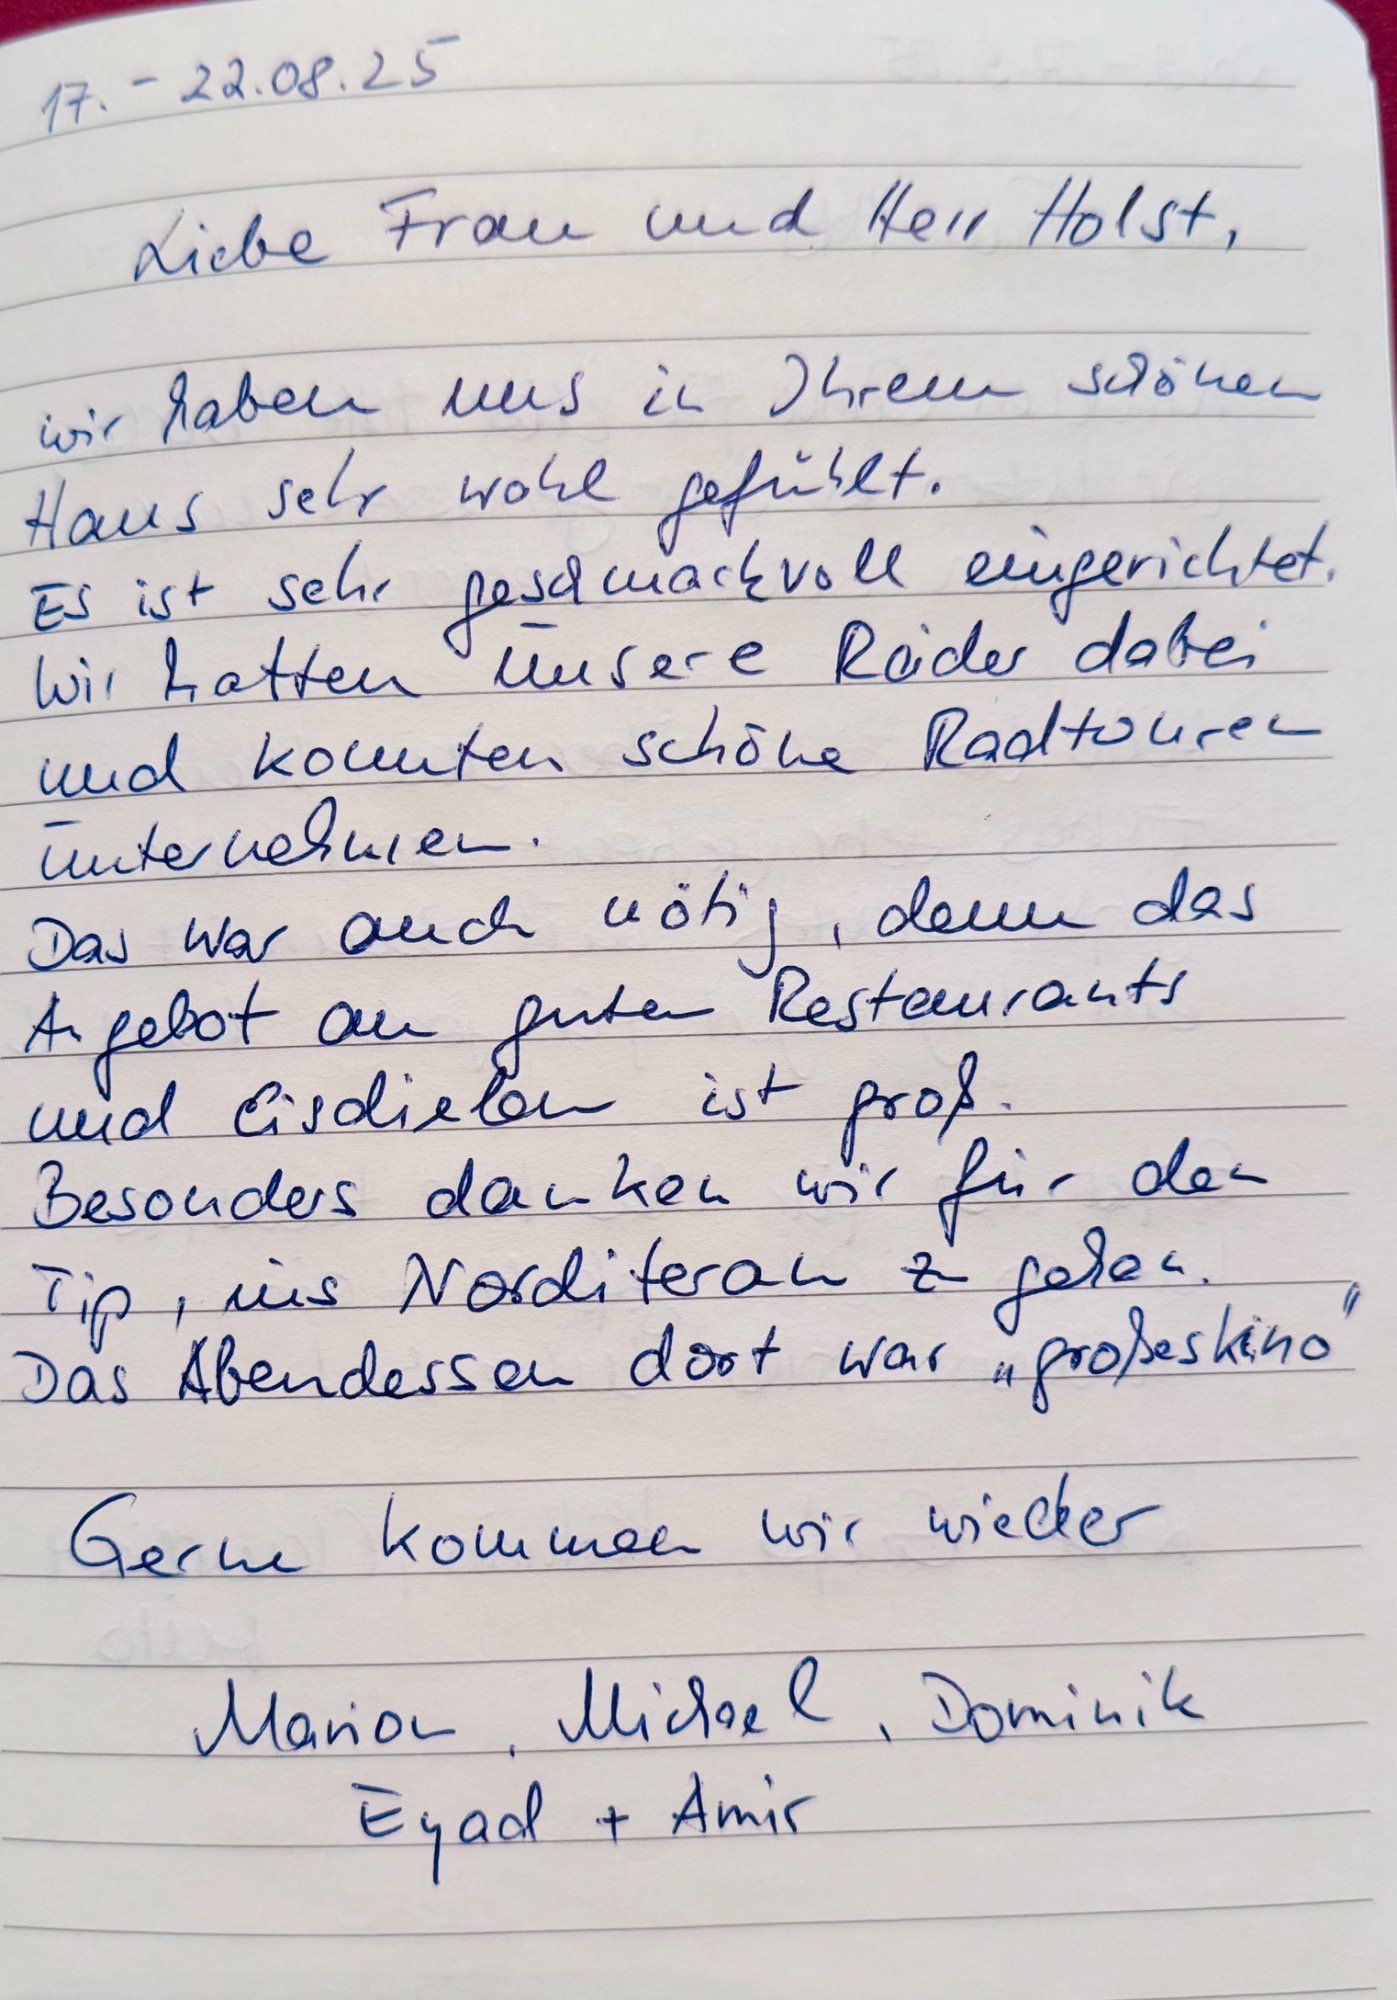 17. - 22.08.25
Liebe Frau und Herr Holst,
wir haben uns in Ihrem schönen
Haus sehr wohl gefühlt.
Es ist sehr geschmackvoll eingerichtet.
Wir hatten unsere Räder dabei
und konnten schöne Radtouren
unternehmen.
Das war auch nötig, denn das
Angebot an guten Restaurants
und Eisdielen ist groß.
Besonders danken wir für den
Tip, ins Norditeran zu gehen.
Das Abendessen dort war „großeskino"
Gerne kommen wir wieder
Marion, Michael, Dominik
Eyad + Amir